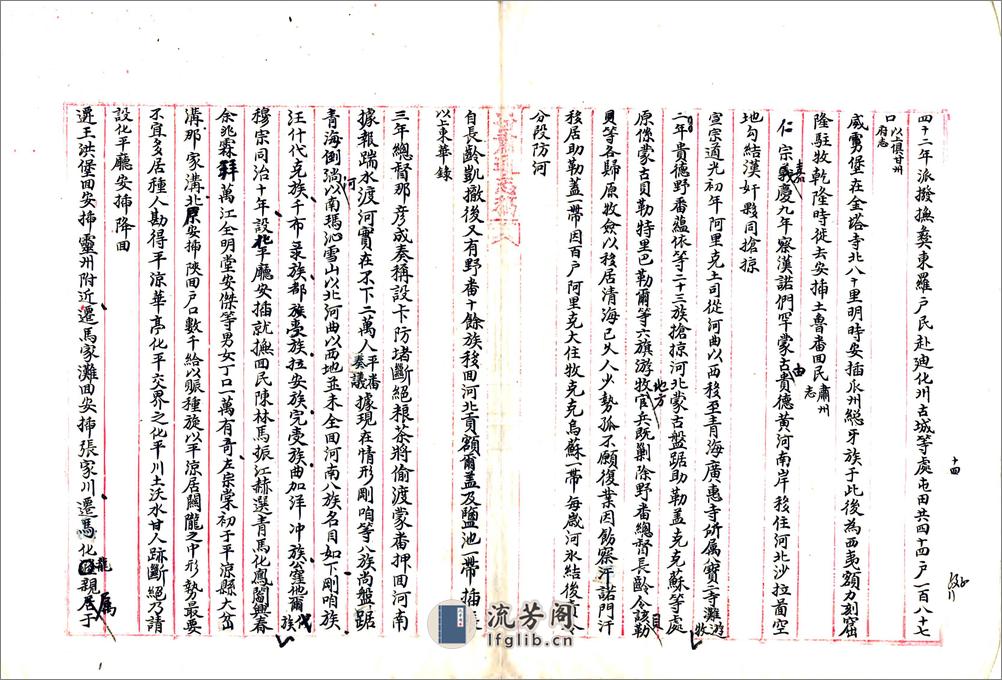 四十二年派撥撫彝東羅戶民赴迪化州古城等處屯田共四十四戶一百八十七
口以上俱甘州府志
威虜堡在金塔寺北八十里明時安插永州總牙族于此後為西夷額力刻窟
隆駐牧乾隆時徙去安插土魯番回民肅州志
仁宗嘉慶九年察漢諾們罕蒙古由貴德黃河南岸移住河北沙拉啚空
地勾結漢奸夥同搶掠
宣宗道光初年阿里克土司從河曲以西移至青海廣惠寺所属八寶二寺灘游牧
二年貴德野番蘊依等二十三族搶掠河北蒙古盤踞助勒盖克克蘇等處地方
原係蒙古貝勒特里巴勒爾等六旗游牧官兵既剿除野番總督長齡令該勒
貝等各歸原牧僉以移居清海已久人少勢孤不願復業因飭察汗諾門汗
移居助勒蓋一帶因百戶阿里克大住牧克克烏蘇一帶每歲河氷結後
分段防河
自長齡凱撤後又有野番十餘族移回河北貢額爾盖及鹽池一帶插
以上東華錄
三年總督那彦成奏稱設卡防堵斷絕粮茶將偷渡蒙番押回河南
據報踹水渡河實在不下二萬人平番奏議據現在情形剛咱等八族尚盤踞
青海倒淌河以南瑪沁雪山以北河曲以西地並未全回河南八族名目如下剛咱族
汪什代克族千布录族都受族拉安族完受族曲加洋冲族公窪他爾代族
穆宗同治十年設化平廳安插就撫回民陳林馬振江赫選青馬化鳳閻興春
余兆霖拜萬江全明堂安傑等男女丁口一萬有奇左宗棠初于平涼縣大岔
溝那家溝北原安插陝回戶口數千給以賑種旋以平涼居關隴之中形勢最要
不宜多居種人勘得平涼華亭化平交界之化平川土沃水甘人跡斷絕乃請
設化平廳安插降回
遷王洪堡回安插靈州附近遷馬家灘回安插張家川遷馬化龍親属居于
十四
流芳阁
lfglib.cn